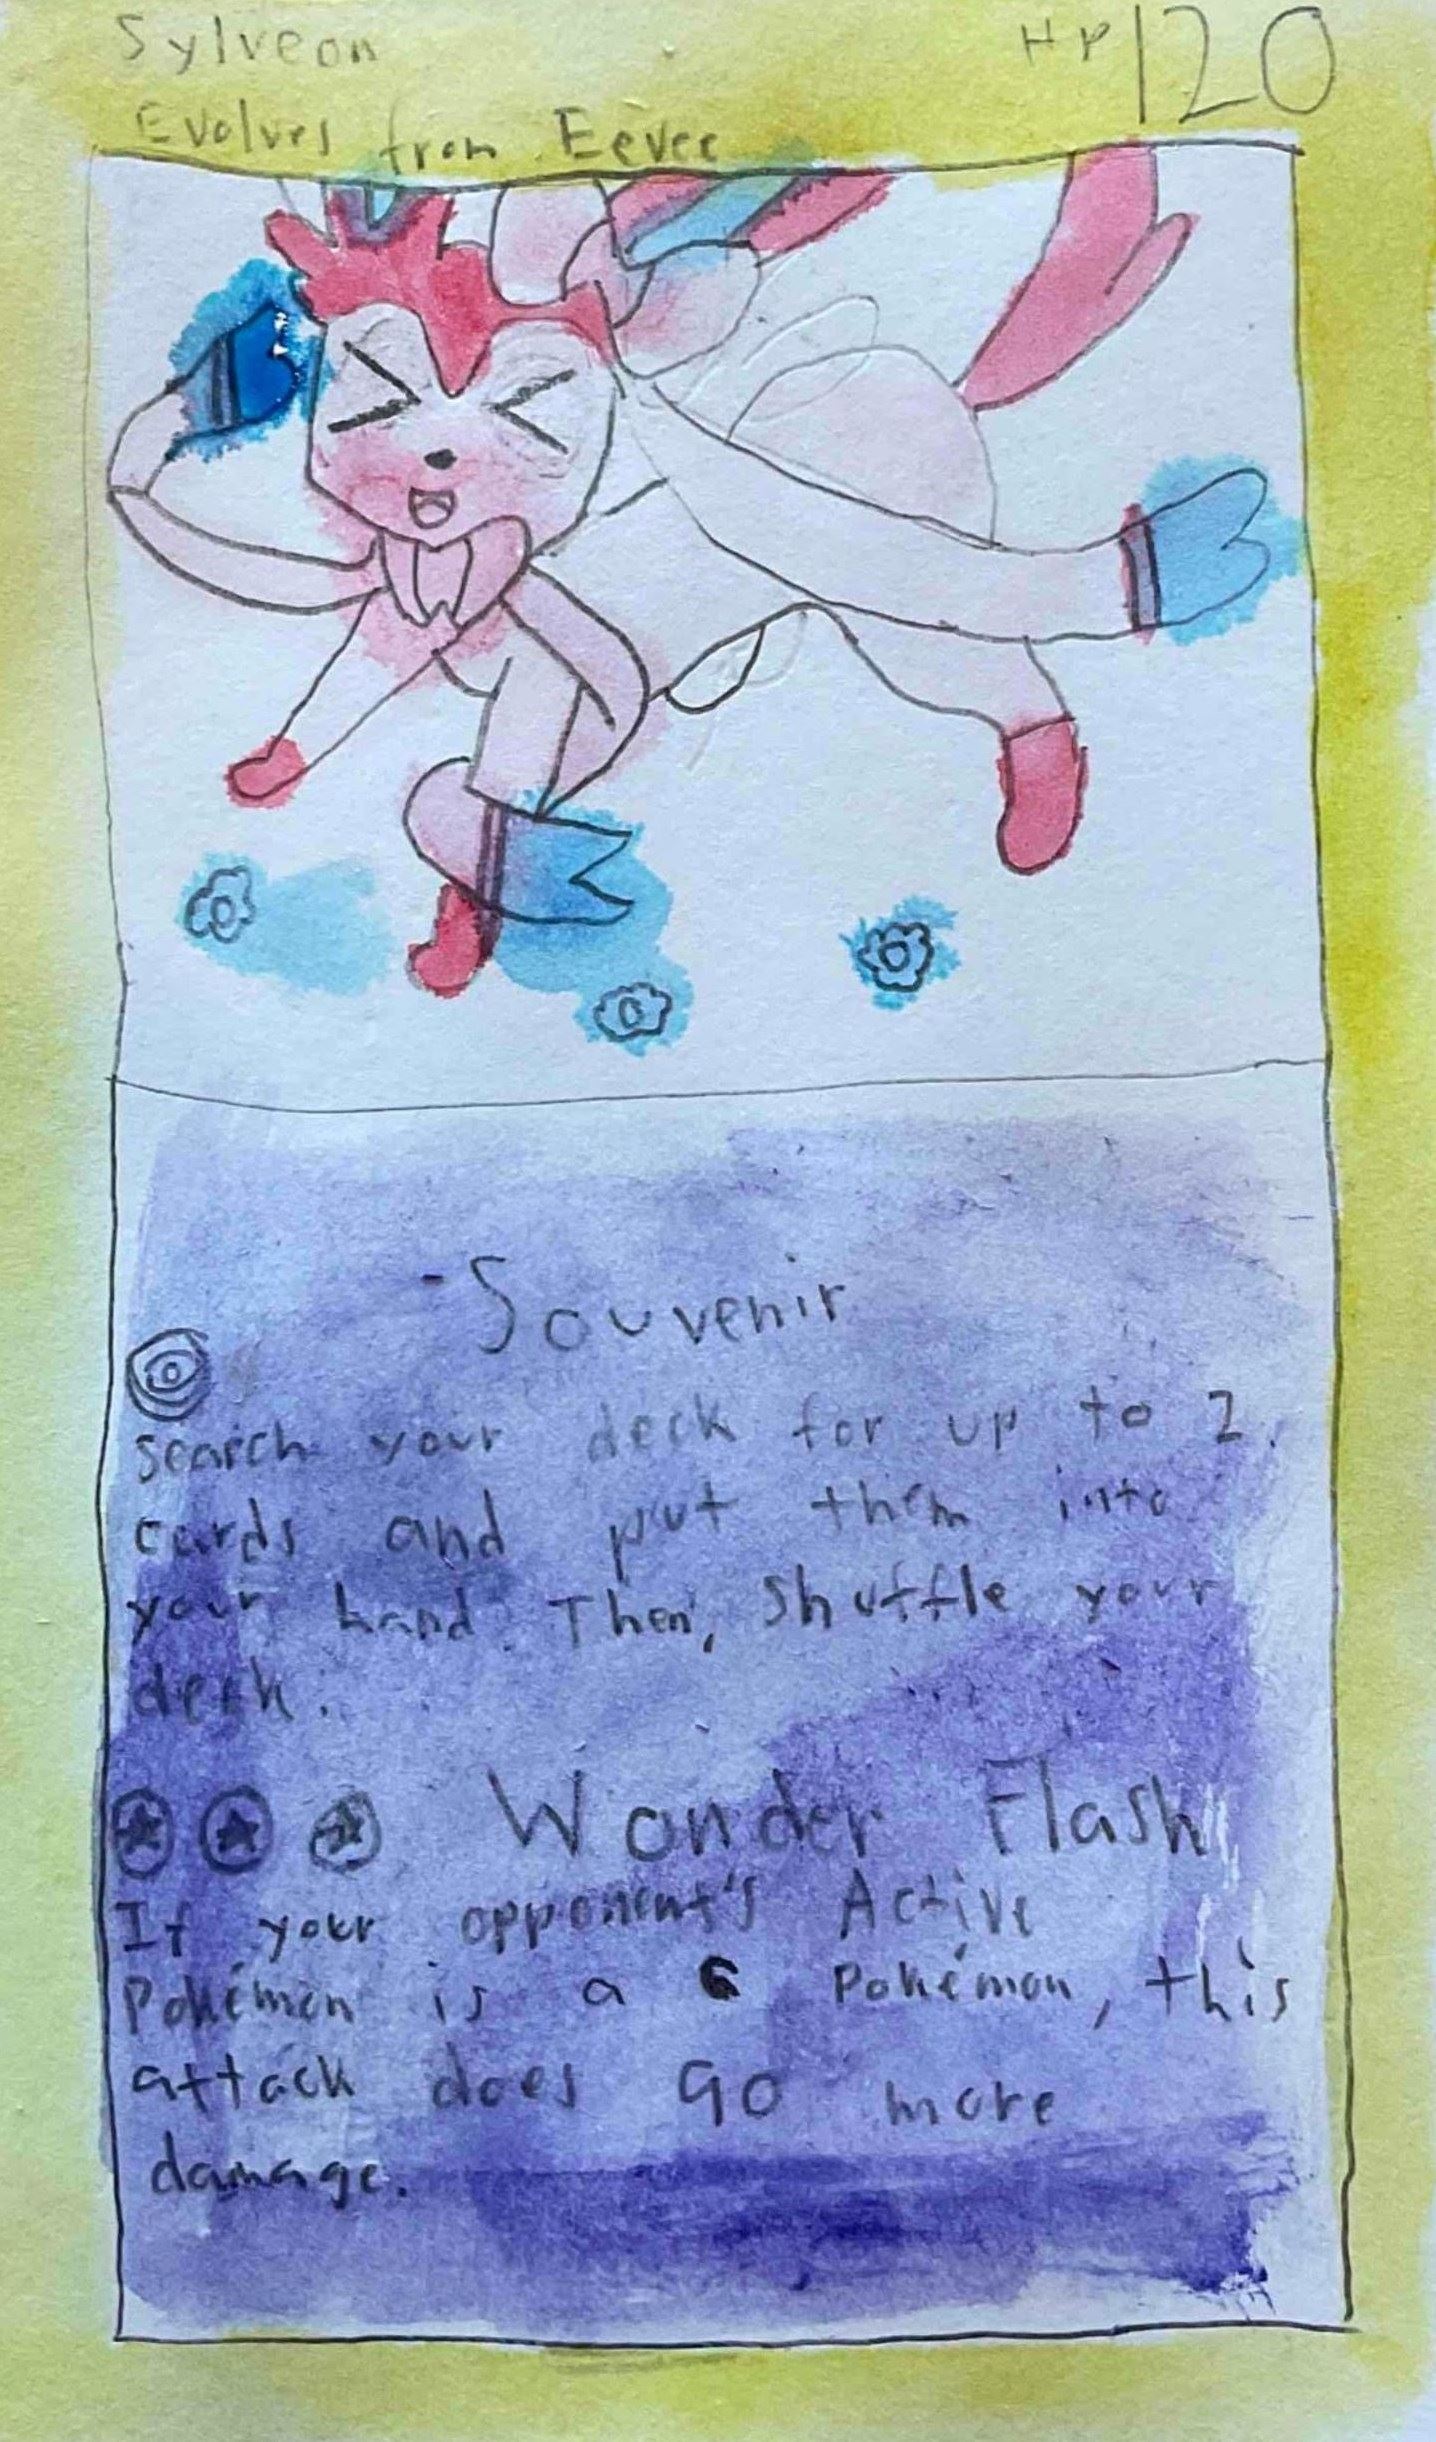 Sylveon
HP 120
Evolves from Eevee
Souvenir
Search your deck for up to 2
cards and put them into
your hand. Then, shuffle your
deck.
Wonder Flash
If your opponent's Active
Pokémon is a Pokémon, this
attack does 90 more
damage.